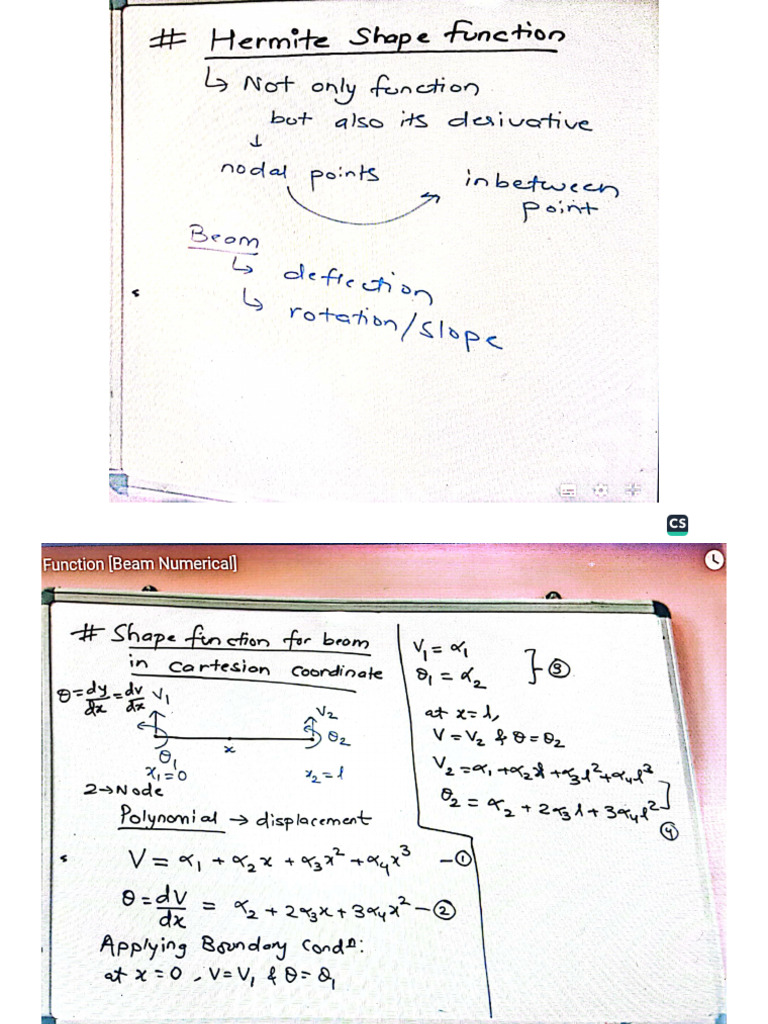 # Hermite Shape function
↳ Not only function
but also its derivative
↓
nodal points
inbetween
point
Beam
↳ deflection
↳ rotation/slope
CS
Function [Beam Numerical]
# Shape function for beam
in cartesion coordinate
θ = dy/dx = dv/dx
V₁
V₂
θ₁
x
θ₂
x₁=0
x₂=l
2→Node
Polynomial → displacement
V = α₁ + α₂x + α₃x² + α₄x³ —①
θ = dV/dx = α₂ + 2α₃x + 3α₄x² —②
Applying Boundary Condⁿ:
at x=0, V=V₁ & θ=θ₁
V₁ = α₁
θ₁ = α₂ } —③
at x=l,
V=V₂ & θ=θ₂
V₂=α₁+α₂l+α₃l²+α₄l³
θ₂ = α₂ + 2α₃l + 3α₄l² ] ④